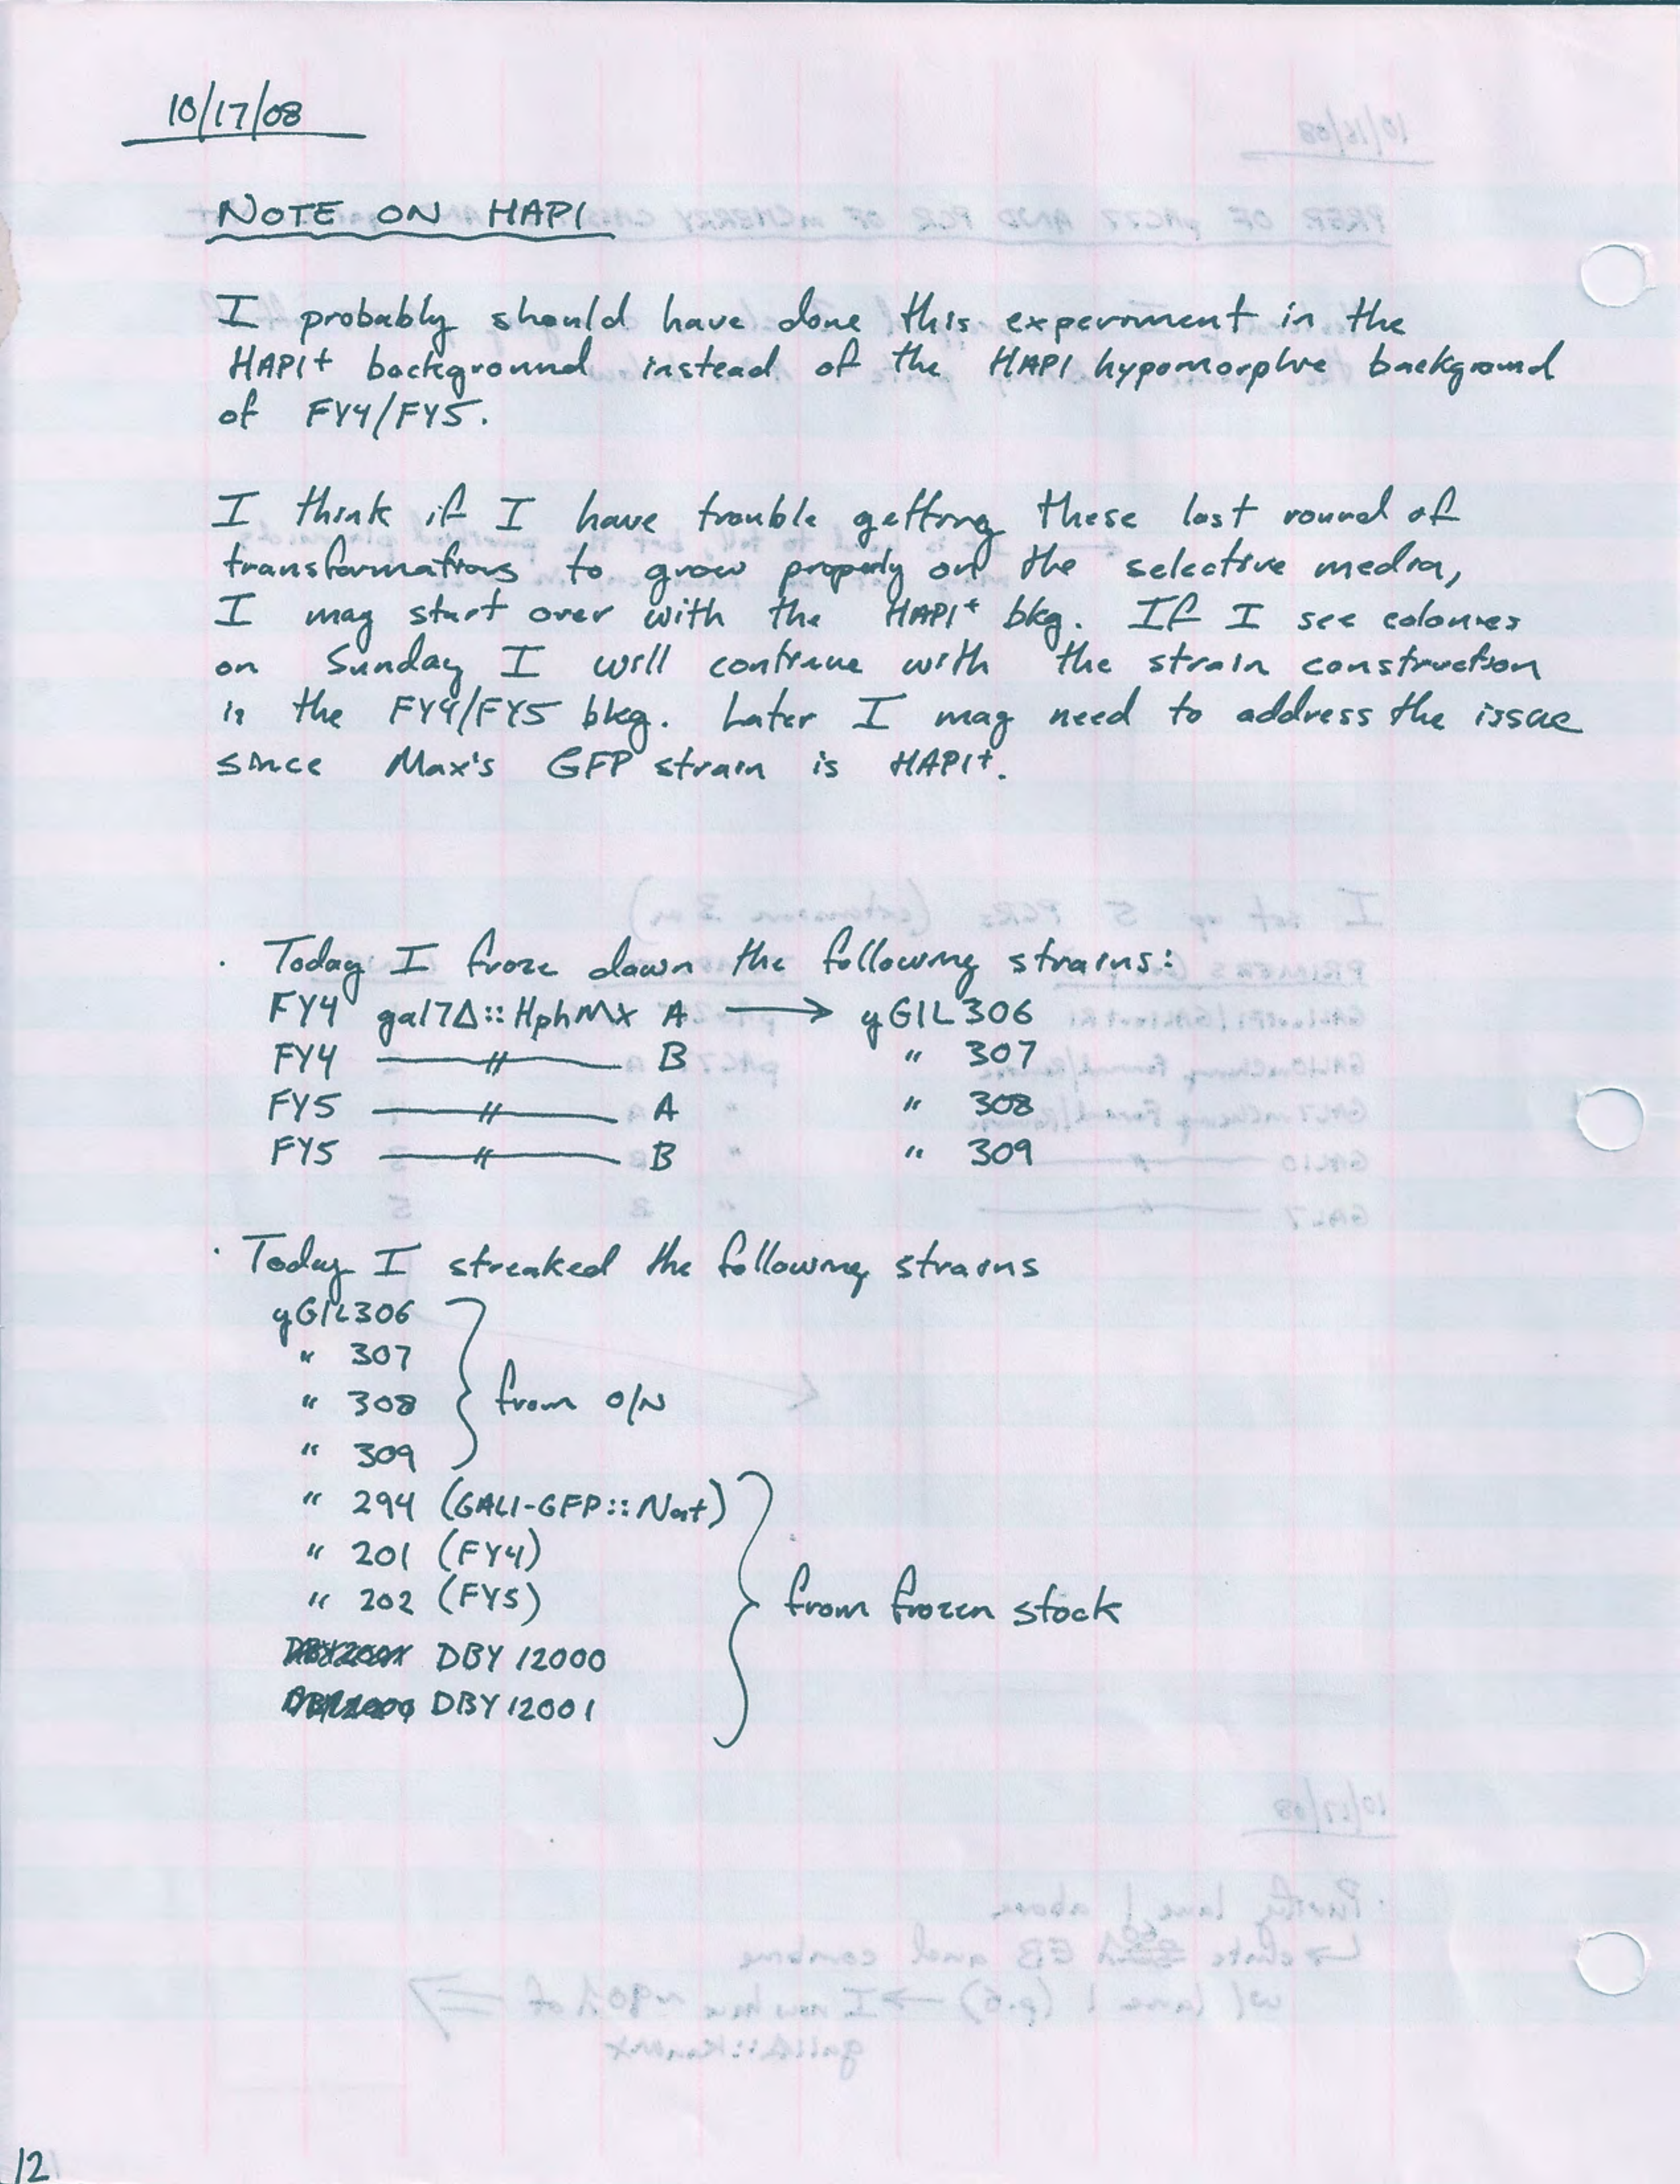 10/17/08
NOTE ON HAP1
I probably should have done this experiment in the
HAP1+ background instead of the HAP1 hypomorphic background
of FY4/FY5.
I think if I have trouble getting these last round of
transformations to grow properly on the selective media,
I may start over with the HAP1+ bkg. If I see colonies
on Sunday I will continue with the strain construction
in the FY4/FY5 bkg. Later I may need to address the issue
since Max's GFP strain is HAP1+.
· Today I froze down the following strains:
FY4 gal7Δ::HphMX A → yGIL306
FY4 —〃— B " 307
FY5 —〃— A " 308
FY5 —〃— B " 309
· Today I streaked the following strains
yGIL306
" 307
" 308 } from O/N
" 309
" 294 (GAL1-GFP::Nat)
" 201 (FY4)
" 202 (FY5) } from frozen stock
DBY 12000
DBY 12001
12